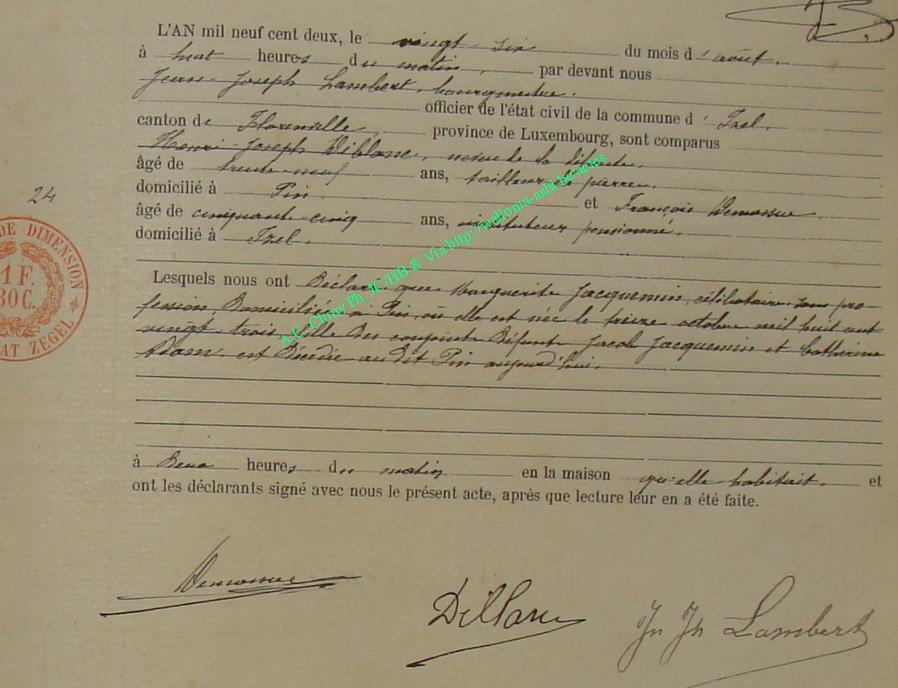 L'AN mil neuf cent deux, le vingt-six du mois d'août,
à huit heures du matin, par devant nous
Jean-Joseph Lambert, bourgmestre,
officier de l'état civil de la commune d'Izel,
canton de Florenville, province de Luxembourg, sont comparus
Henri-Joseph Diblanc, neveu de la défunte,
âgé de trente-neuf ans, tailleur de pierre,
domicilié à Pin, et François
âgé de cinquante-cinq ans, instituteur pensionné,
domicilié à Izel.
24
DE DIMENSION
1 F.
30 C.
AT ZEGEL
Lesquels nous ont déclaré que Marguerite Jacquemin, célibataire, sans pro-
fession, domiciliée à Pin, où elle est née le treize octobre mil huit cent
vingt trois, fille des conjoints défunts Jacob Jacquemin et Catherine
Adam, est décédée au dit Pin aujourd'hui,
à deux heures du matin en la maison qu'elle habitait, et
ont les déclarants signé avec nous le présent acte, après que lecture leur en a été faite.
Jn Jh Lambert
A.C. Chiny Ph. JC/HB ® Via http://wallonia-asbl.be/actes